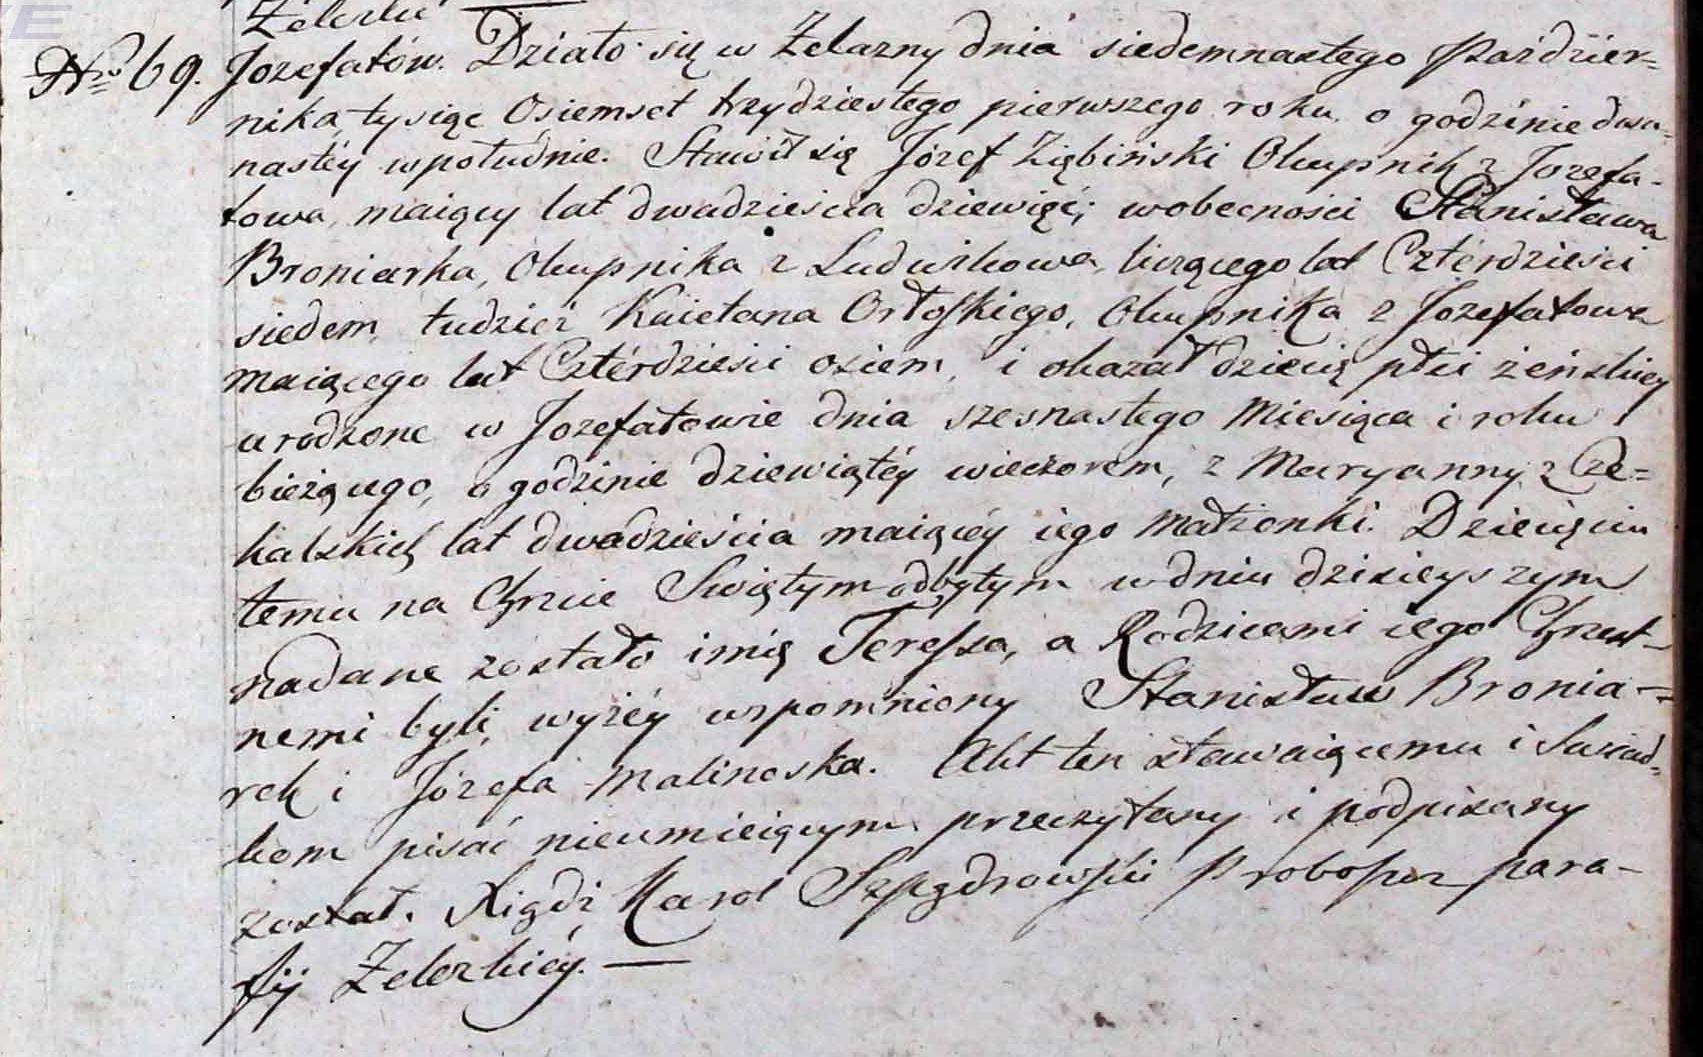 Nro 69. Jozefatów. Działo się w Żelazny dnia siedemnastego Paździer=
nika, tysiąc Osiemset trzydziestego pierwszego roku o godzinie dwu=
nastéy wpołudnie. Stawił się Józef Ziębiński Okupnik z Jozefa-
towa, maiący lat dwadzieścia dziewięć; wobecności Stanisława
Broniarka, Okupnika z Ludwikowa, liczącego lat Cztérdzieści
siedem, tudzież Kaietana Orłoskiego, Okupnika z Jozefatowa
maiącego lat Cztérdzieści osiem, i okazał dziecię płci żeńskiey
urodzone w Jozefatowie dnia szesnastego Miesiąca i roku
bieżącego, o godzinie dziewiątéy wieczorem, z Maryanny z Cze=
kalskich lat dwadzieścia maiącéy iego Małżonki. Dziecięciu
temu na Chrzcie Swiętym odbytym w dniu dzisieyszym
nadane zostało imię Teressa, a Rodzicami iego Chrzest-
nemi byli, wyżéy wspomniony Stanisław Bronia-
rek i Józefa Malinoska. Akt ten stawaiącemu i Swiad=
kom pisać nieumieiącym przeczytany i podpisany
został. Xiądz Karol Proboszcz para-
fij Żelezkiéy. —